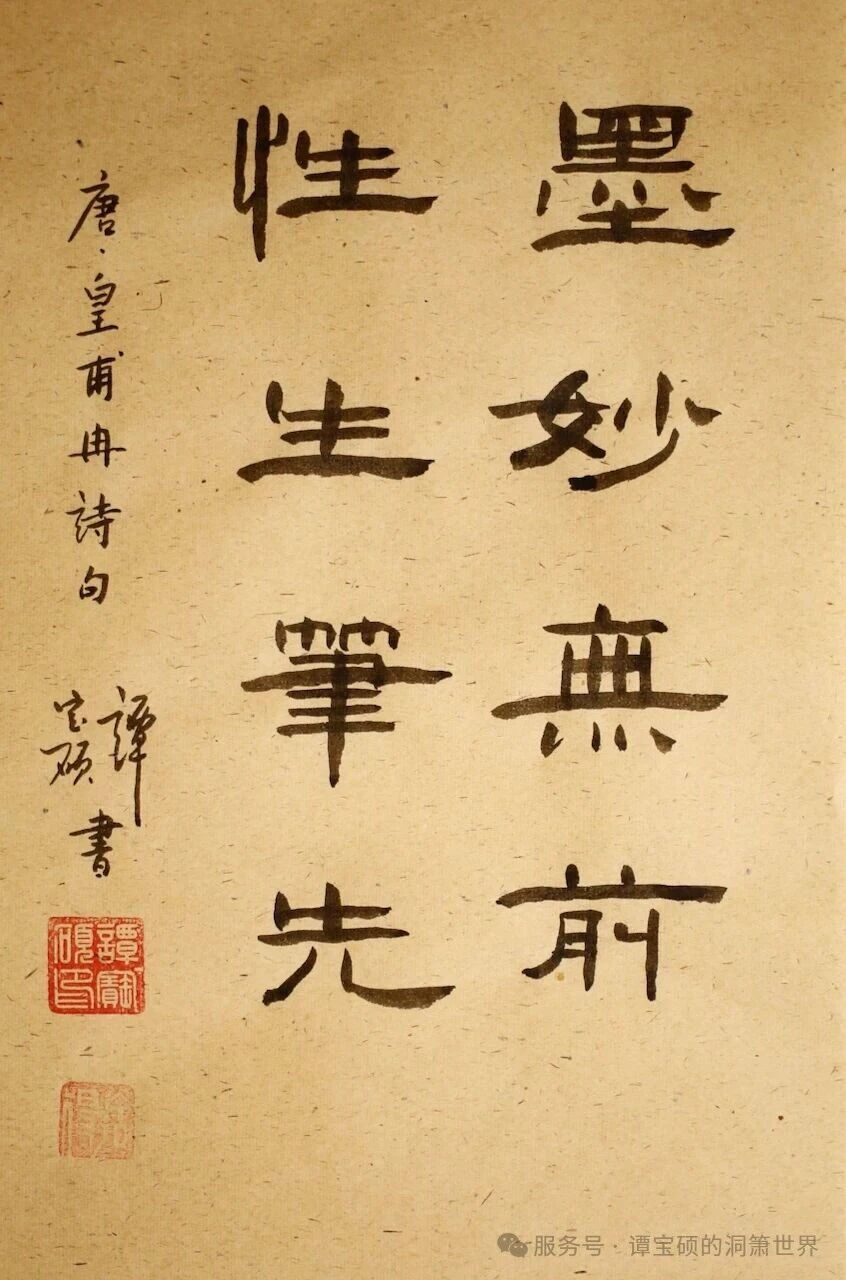 墨妙無前
性生筆先
唐·皇甫冉詩句
譚宝碩書
譚寶碩印
服务号·谭宝硕的洞箫世界